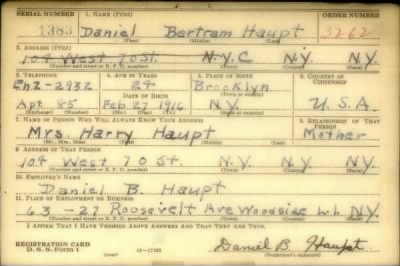 SERIAL NUMBER 1. NAME (Print) ORDER NUMBER
1383 Daniel Bertram Haupt 3262
(First) (Middle) (Last)
2. ADDRESS (Print)
104 West 70 St. N.Y.C N.Y. N.Y.
(Number and street or R. F. D. number) (Town) (County) (State)
3. TELEPHONE 4. AGE IN YEARS 5. PLACE OF BIRTH 6. COUNTRY OF CITIZENSHIP
2-2932 24 Brooklyn
Apt. 85 Feb. 27 1916 N.Y. U.S.A.
(Exchange) (Number) (Mo.) (Day) (Yr.) (State or country)
7. NAME OF PERSON WHO WILL ALWAYS KNOW YOUR ADDRESS 8. RELATIONSHIP OF THAT PERSON
Mrs. Harry Haupt Mother
(Mr., Mrs., Miss) (First) (Middle) (Last)
9. ADDRESS OF THAT PERSON
104 West 70 St. N.Y. N.Y. N.Y.
(Number and street or R. F. D. number) (Town) (County) (State)
10. EMPLOYER'S NAME
Daniel B. Haupt
11. PLACE OF EMPLOYMENT OR BUSINESS
63-27 Roosevelt Ave Woodside L.I. N.Y.
(Number and street or R. F. D. number) (Town) (County) (State)
I AFFIRM THAT I HAVE VERIFIED ABOVE ANSWERS AND THAT THEY ARE TRUE.
REGISTRATION CARD
D. S. S. Form 1 (over) 16-17105 Daniel B. Haupt
(Registrant's signature)